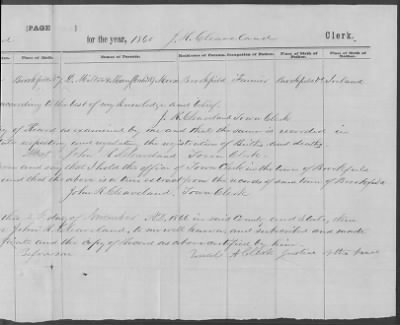 [PAGE
for the year, 1860 J. K. Cleaveland Clerk.
Place of Birth. Names of Parents. Residence of Parents. Occupation of Father. Place of Birth of Father. Place of Birth of Mother.
Brookfield Vt Brookfield Farmer Brookfield Vt Ireland
according to the best of my knowledge and belief.
J. K. Cleaveland Town Clerk
of Record as examined by me and that the same is recorded in
registry and the registration of Births and deaths
Attest John K. Cleaveland Town Clerk
and say that I hold the office of Town Clerk in the town of Brookfield
and that the above is a true extract from the records of said town of Brookfield
John K. Cleaveland, Town Clerk
this day of November A.D. 1866 in said County and State, then
John K. Cleaveland, to me well known, and subscribed and made
and the copy of Record as above certified by him.
Before me Justice of the Peace